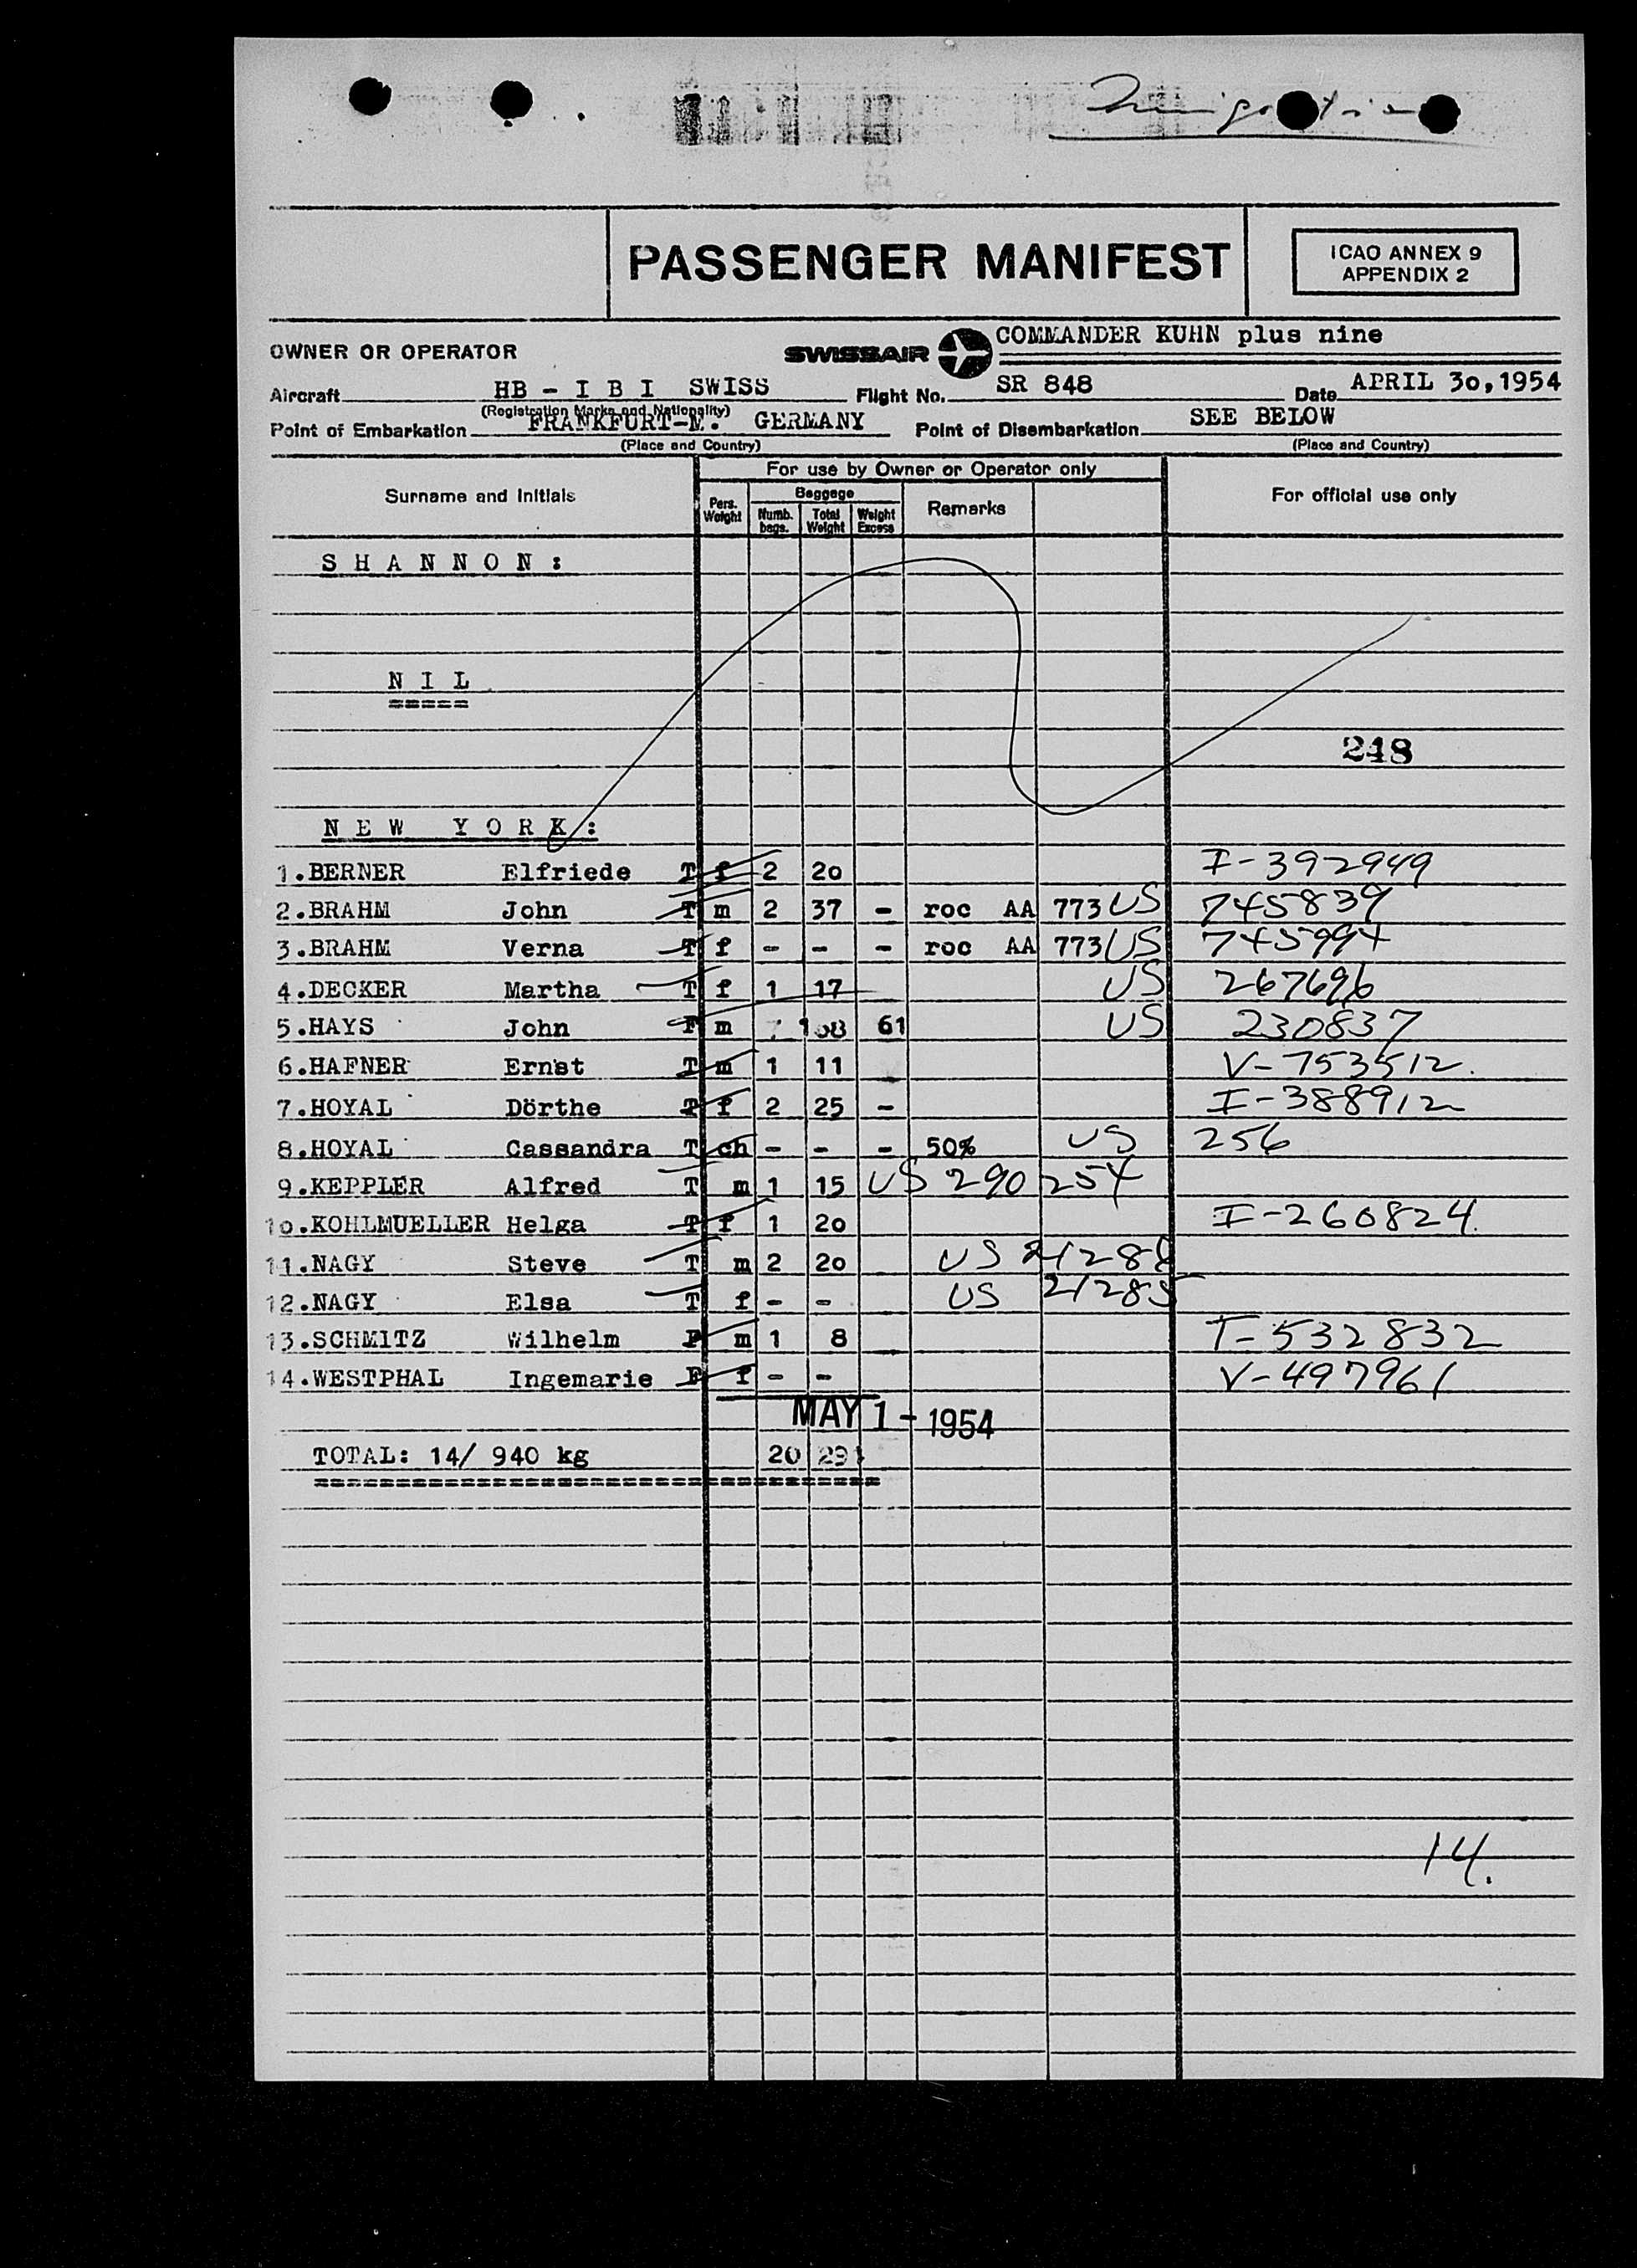 Immigration
PASSENGER MANIFEST
ICAO ANNEX 9
APPENDIX 2
OWNER OR OPERATOR SWISSAIR COMMANDER KUHN plus nine
Aircraft HB - I B I SWISS Flight No. SR 848 Date APRIL 30,1954
(Registration Marks and Nationality)
Point of Embarkation FRANKFURT-M. GERMANY Point of Disembarkation SEE BELOW
(Place and Country) (Place and Country)
For use by Owner or Operator only
Surname and Initials Pers. Weight Baggage Numb. bags. Total Weight Weight Excess Remarks For official use only
S H A N N O N :
N I L
=====
248
N E W Y O R K :
1.BERNER Elfriede T f 2 20 I-392949
2.BRAHM John T m 2 37 - roc AA 773 US 745839
3.BRAHM Verna T f - - - roc AA 773 US 745994
4.DECKER Martha T f 1 17 US 267696
5.HAYS John F m 61 US 230837
6.HAFNER Ernst T m 1 11 V-753512.
7.HOYAL Dörthe T f 2 25 - I-388912
8.HOYAL Cassandra T ch - - - 50% US 256
9.KEPPLER Alfred T m 1 15 US 290254
10.KOHLMUELLER Helga T f 1 20 I-260824.
11.NAGY Steve T m 2 20 US
12.NAGY Elsa T f - - US 21285
13.SCHMITZ Wilhelm F m 1 8 T-532832
14.WESTPHAL Ingemarie F f - - V-497961
MAY 1 - 1954
TOTAL: 14/ 940 kg 20
14.